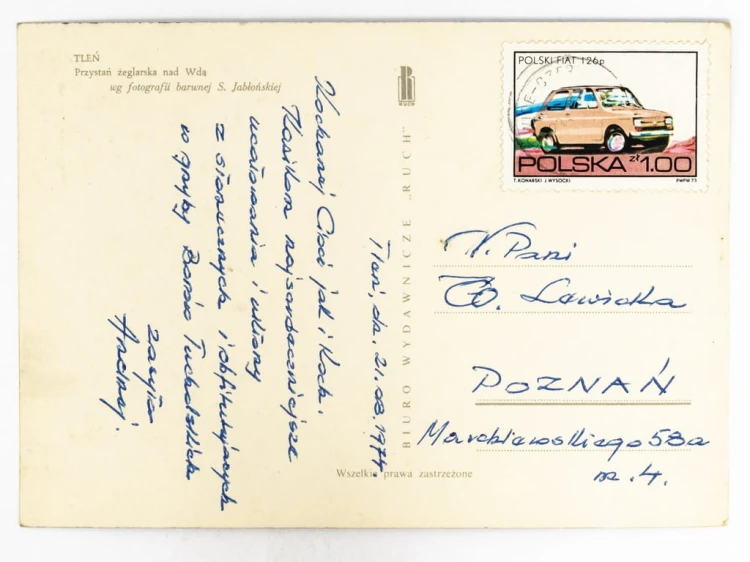 TLEŃ
Przystań żeglarska nad Wdą
wg fotografii barwnej S. Jabłońskiej
RUCH
BIURO WYDAWNICZE „RUCH"
Wszelkie prawa zastrzeżone
POLSKI FIAT 126p
POLSKA zł 1.00
T. KONARSKI J. WYSOCKI PWPW 73
Tleń, dn. 21.08.1974
Kochanej Cioci jak i Koch.
Kasikom najserdeczniejsze
ucałowania i ukłony
z słonecznych i obfitujących
w grzyby Borów Tucholskich
zasyła
Andrzej.
W. Pani
Lawicka
POZNAŃ
58a
m. 4.